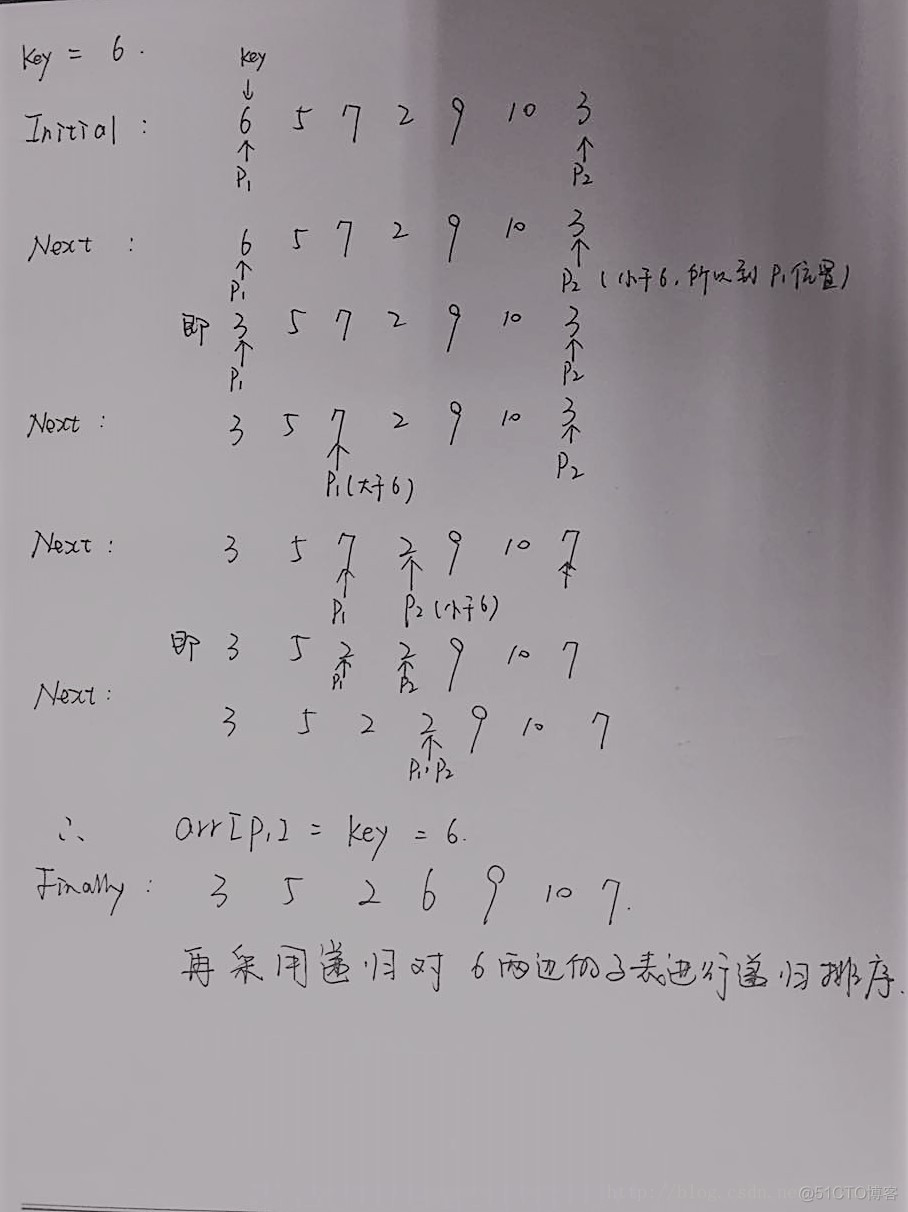 key = 6.
key
↓
Initial : 6 5 7 2 9 10 3
↑ ↑
P1 P2
Next : 6 5 7 2 9 10 3
↑ ↑
P1 P2 (小于6,所以到P1位置)
即 3 5 7 2 9 10 3
↑ ↑
P1 P2
Next : 3 5 7 2 9 10 3
↑ ↑
P1(大于6) P2
Next : 3 5 7 2 9 10 7
↑ ↑ ↑
P1 P2(小于6)
即 3 5 2 2 9 10 7
↑ ↑
P1 P2
Next :
3 5 2 2 9 10 7
↑
P1,P2
∴ arr[P1] = key = 6.
Finally : 3 5 2 6 9 10 7.
再采用递归对6两边的子表进行递归排序.
@51CTO博客